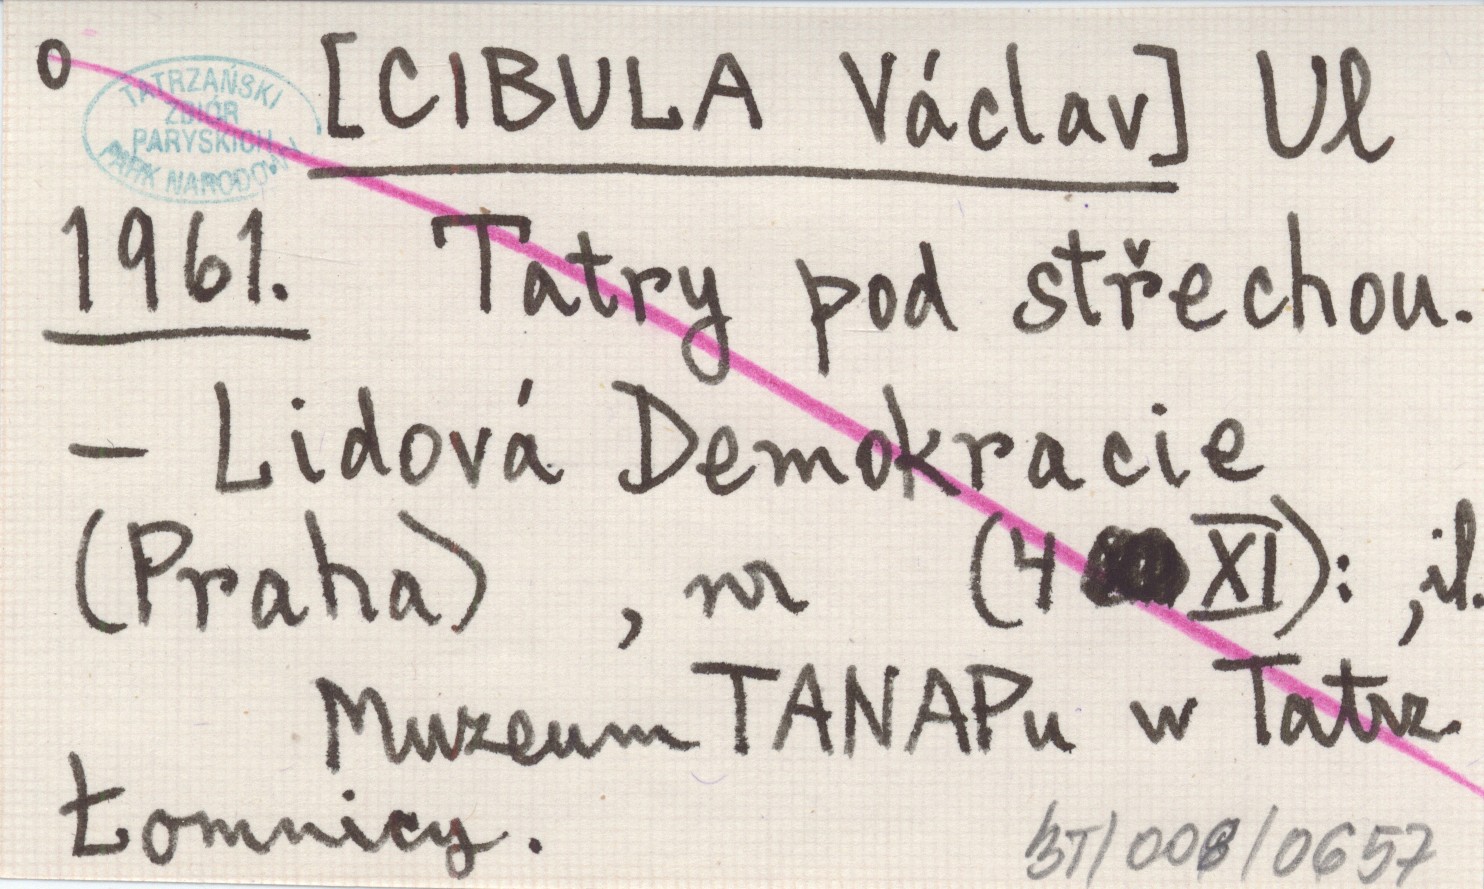 o [CIBULA Václav] Ul
TATRZAŃSKI
ZBIÓR
PARYSKICH
PARK NARODOWY
1961. Tatry pod střechou.
– Lidová Demokracie
(Praha) , nr (4 XI): , il.
Muzeum TANAPu w Tatrz
Łomnicy.
BT/008/0657